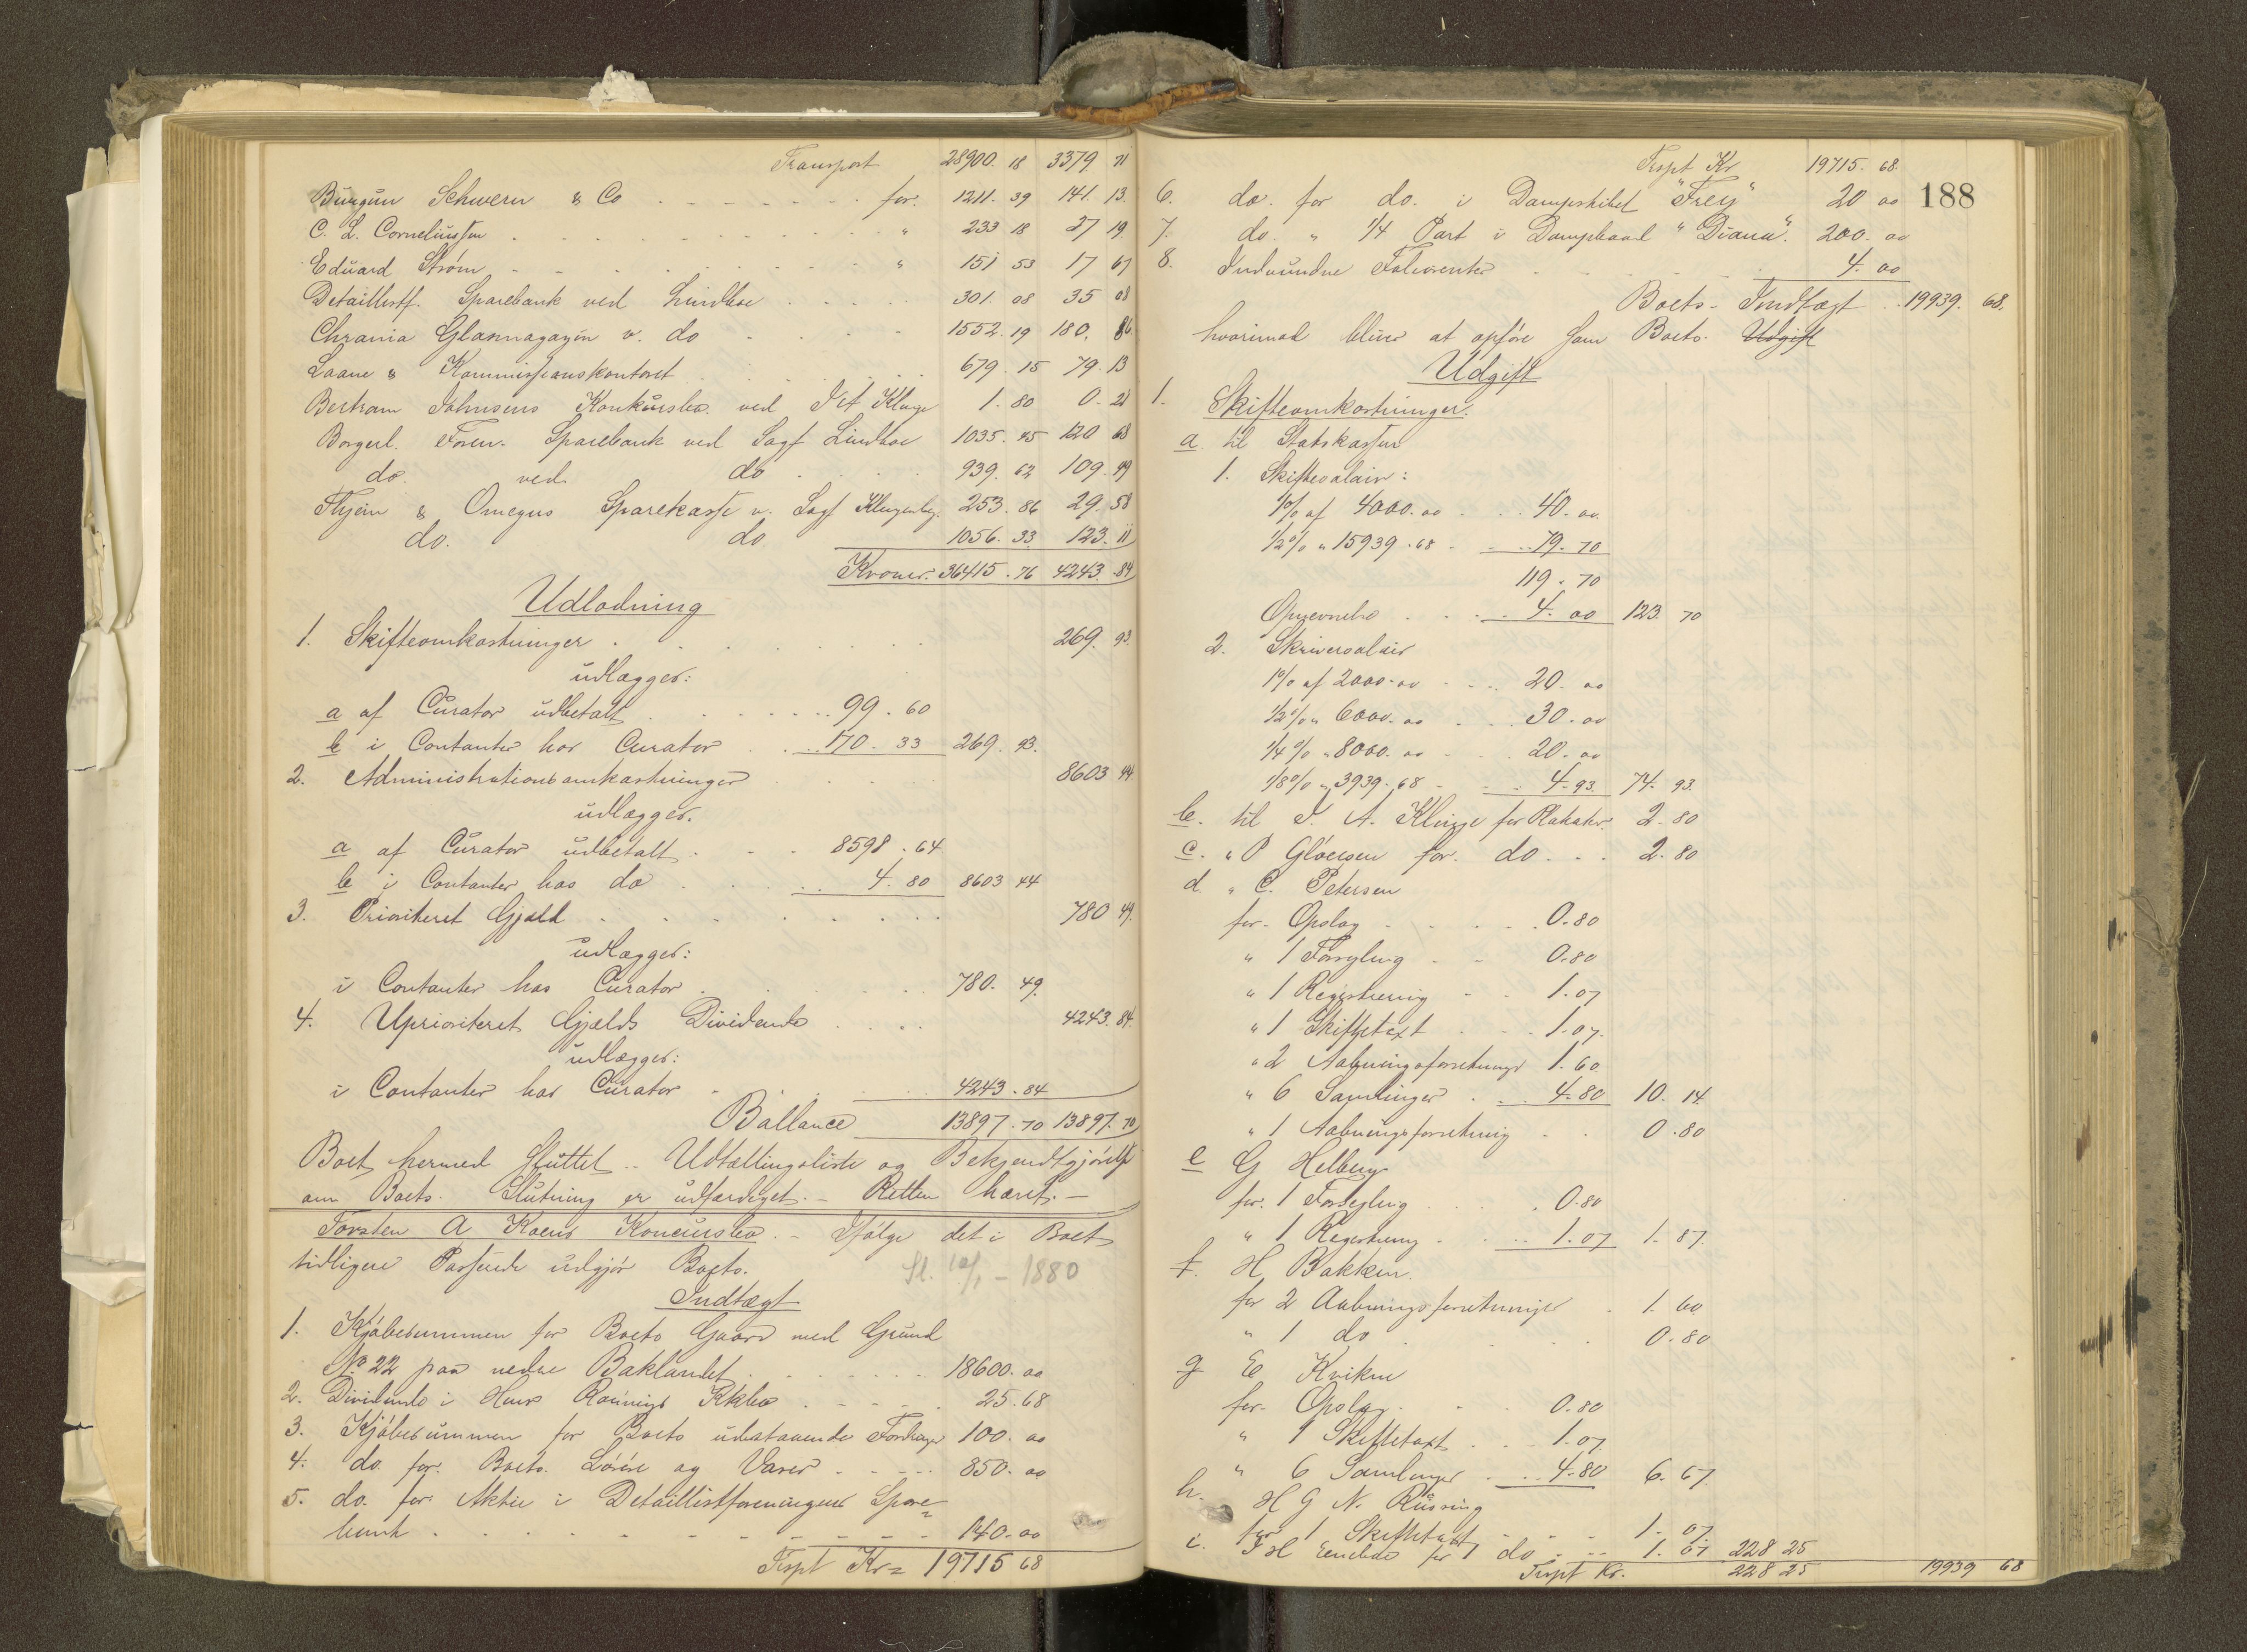 Transport 28900. 18 3379. 71
Burgun Schweru & Co for. 1211. 39 141. 13
C. L. Corneliussen " 233 18 27 19
Eduard Strøm " 151 53 17 67
Detaillistf. Sparebank ved Lindboe 301. 08 35 08
Chrania Glasmagazin v. do 1552. 19 180. 86
Laane & Kommissionskontoret 679. 15 79. 13
Bertram Johnsens Konkursbo ved Klinge 1. 80 0. 21
Borgerl. Foren. Sparebank ved Sagf Lindboe 1035. 45 120 68
do. ved do 939. 62 109. 49
& Omegns Sparekasse v. Sagf Klingenbeg. 253. 86 29. 58
do. do 1056. 33 123. 11
Kroner. 36415. 76 4243. 84
Udlodning
1. Skifteomkostninger 269. 93
udlægges:
a af Curator udbetalt 99. 60
b i Contanter hos Curator 170. 33 269. 93.
2. Administrationsomkostninger 8603 44
udlægges.
a af Curator udbetalt 8598. 64
b i Contanter hos do 4. 80 8603 44
3. Prioriteret Gjæld 780 49.
udlægges:
i Contanter hos Curator 780. 49.
4. Uprioriteret Gjælds Dividende 4243. 84
udlægges:
i Contanter hos Curator 4243. 84
Ballance 13897. 70 13897. 70
Boet hermed sluttet. Udtællingsliste og Bekjendtgjørelse
om Boets Slutning er udfærdiget. – Retten hævet. –
Torsten A Koens Koncursbo. – Ifølge det i Boet
tidligere Passerede udgjør Boets. Sl. 10/1 – 1880
Indtægt
1. Kjøbesummen for Boets Gaard med Grund
No 22 paa nedre Baklandet 18600. 00
2. Dividende i Hans Rønnings Kkbo 25. 68
3. Kjøbesummen for Boets udestaaende Fordringer 100. 00
4. do. for. Boets Løsøre og Varer 850. 00
5. do. for Aktie i Detaillistforeningens Spare=
bank 140. 00
Trspt Kr = 19715 68
Trspt Kr 19715. 68.
188
6. do. for do. i Dampskibet "Frey" 20 00
7. do. " 1/4 Part i Dampbaad "Diana". 200. 00
8. Indvundne 4. 00
Boets Indtægt 19939. 68.
hvorimod bliver at opføre som Boets Udgift
Udgift
1. Skifteomkostninger.
a til Statskassen
1. Skiftesalair:
1% af 4000. 00 40. 00
1/2% " 15939. 68 79. 70
119. 70
Opnevnelse 4. 00 123. 70
2. Skriversalair
1% af 2000. 00 20. 00
1/2% " 6000. 00 30. 00
1/4% " 8000. 00 20. 00
1/8% " 3939. 68 4. 93. 74. 93.
b. til I. A. Klinge for Plakater. 2. 80
c. " P Gløersen for. do 2. 80
d. " C. Petersen
for. Opslag 0. 80
" 1 Forsegling 0. 80
" 1 Registrering 1. 07
" 1 Skiftetaxt 1. 07.
" 2 Aabningsforretninger 1. 60
" 6 Samlinger 4. 80 10. 14
" 1 Aabningsforretning 0. 80
e G Helberg
for. 1 Forsegling 0. 80
" 1 Registrering 1. 07 1. 87
f. H. Bakken.
for 2 Aabningsforretninger 1. 60
" 1 do 0. 80
g E Kvikne
for. Opslag 0. 80
" 1 Skiftetaxt 1. 07
" 6 Samlinger 4. 80 6. 67
h. H G N. Rüsing
for 1 Skiftetaxt 1. 07
i. for 1 do 1. 07 228 25
Trspt Kr. 228 25 19939 68